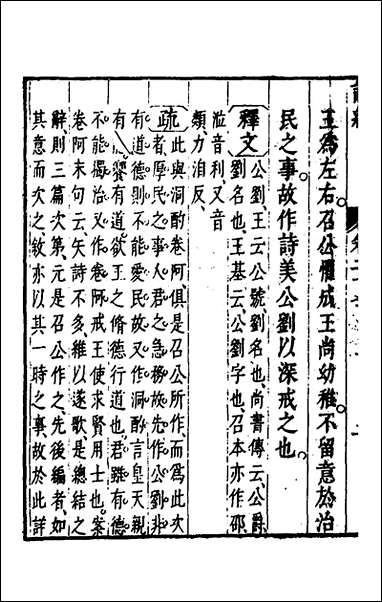 王為左右召公懼成王尚幼稚不留意於治
民之事故作詩美公劉以深戒之也
釋文
公劉王云公號劉名也尚書傳云公爵
劉名也王基云公劉字也召本亦作邵
涖音利又音
類力洎反
疏
此與泂酌卷阿俱是召公所作而為此次
者厚民之事人君之急務故先作公劉非
有道德則不能愛民故又作泂酌言皇天親
有德饗有道欲王之脩德行道也君雖有德
不能獨治又作卷阿戒王使求賢用士也案
卷阿末句云矢詩不多維以遂歌是總結之
辭則三篇次第元是召公作之先後編者如
其意而次之敘亦以其一時之事故於此詳